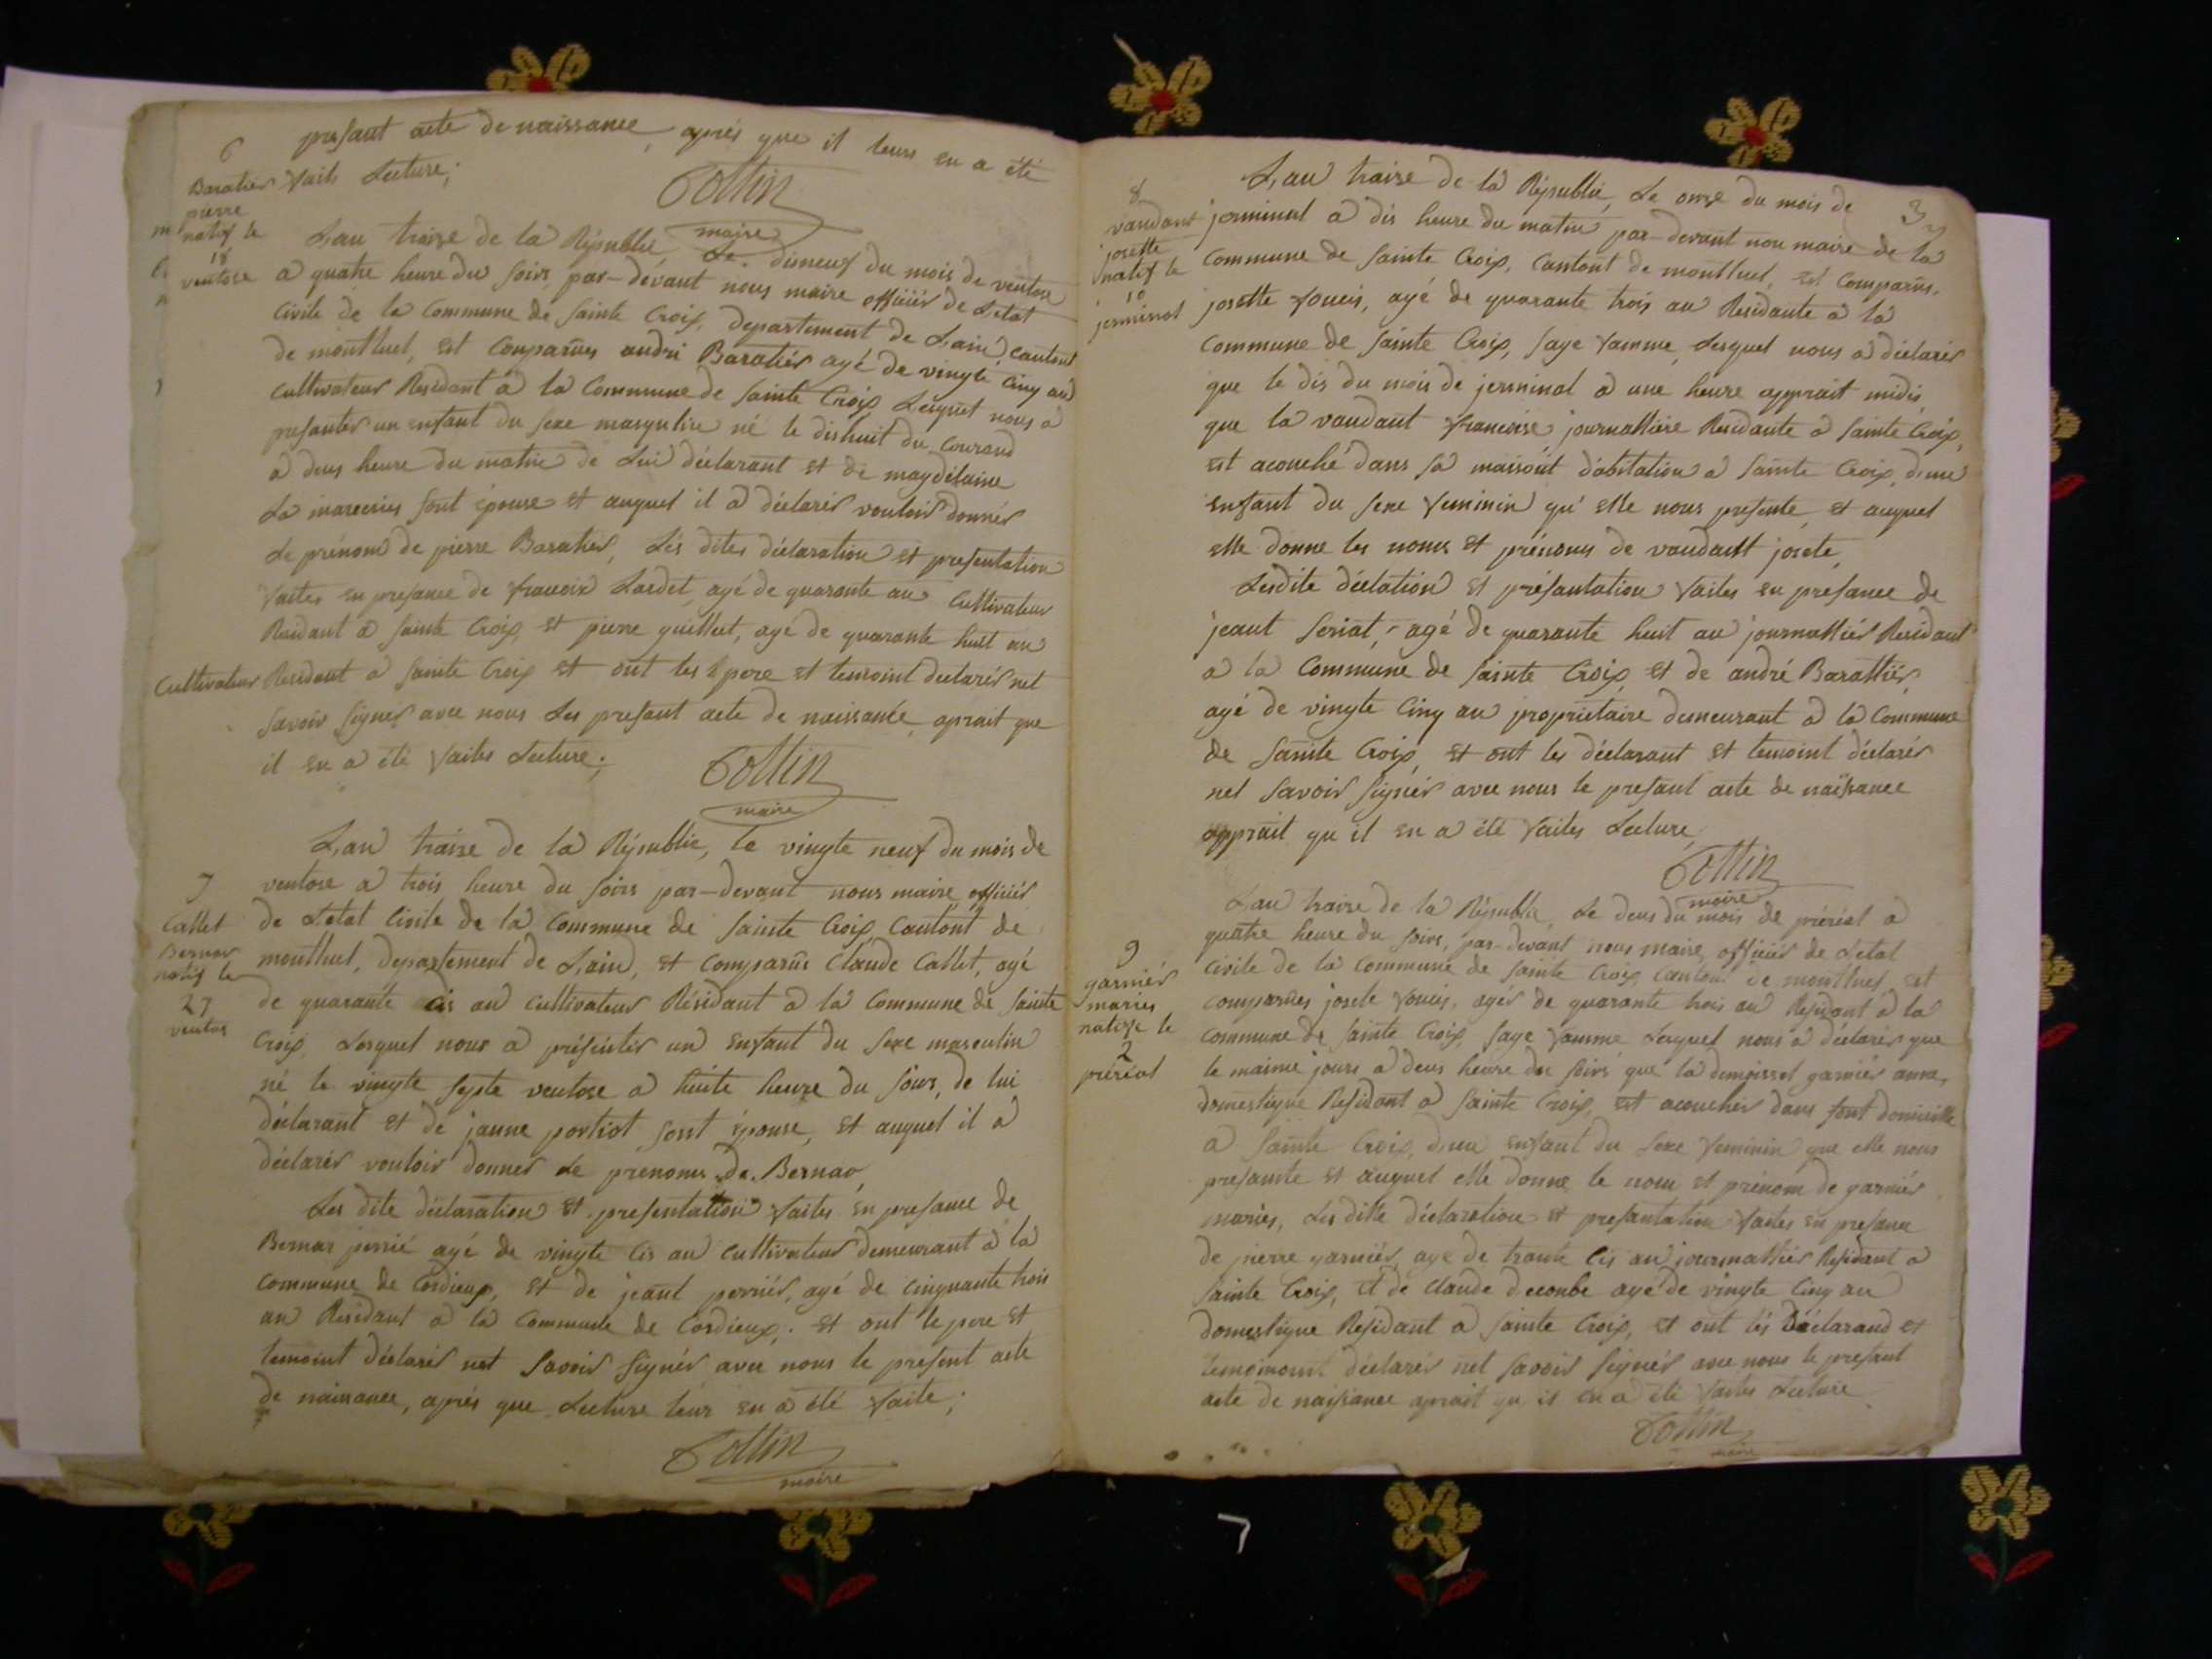 presant acte de naissance, aprés que il leurs en a été
faits Lecture;
Tottin
maire
6
Baratier
pierre
natif le
18
ventose
L,an traize de la République Le disneuf du mois de ventose
a quatre heure du soirs par-devant nous maire officiér de L'etat
Civile de la Commune de Sainte Croix, departement de L,ain, cantont
de montluel, est Comparûes andré Baratiér agé de vingte Cinq an
Cultivateur Residant a la Commune de Sainte Croix Lesquel nous a
presanter un enfant du sexe masquline né le dishuit du Courand
a deus heure du matin de Lui déclarant et de magdélaine
La marceries sont épouse et auquel il a déclarér vouloir donnér
Le prénom de pierre Baratier, Lés dites déclaration et presentation
faites en presance de francoix Lardet, agé de quarante an Cultivateur
Residant a Sainte Croix, et pierre guilleut, agé de quarante huit an
Cultivateur Residant a Sainte Croix et ont les pere et temoint declarér net
savoir signer avec nous Les presant acte de naissance, aprait que
il en a été faites Lecture;
Tottin
maire
7
Callet
Bernar
natif le
27
ventos
L,an traize de la Républic, le vingte neuf du mois de
ventose a trois heure du soirs par-devant nous maire officiér
de L'etat Civile de la Commune de Sainte Croix Cantont de
montluel, departement de L,aind, et Comparûs Claude Callet, agé
de quarante cis an Cultivateur Résidant a la Commune de Sainte
Croix, Lesquel nous a présenter un enfant du sexe masculin
né le vingte septe ventose a huite heure du soirs, de lui
déclarant et de janne portiot sont épouse, et auquel il a
déclarér vouloir donner Le prenoms de Bernar,
Les dite déclaration et presentation faites en presance de
Bernar perrié agé de vingte cis an Cultivateur demeurant à la
Commune de Cordieux, et de jeant perriér, agé de cinquante trois
an Residant a la Commune de Cordieux; et ont le pere et
temoint déclarér net savoir signér avec nous le present acte
de naissance, aprés que Lecture leur en a été faite;
Tottin
maire
3
8
vaudant
josette
natif le
10
jerminal
L,an traize de la Républic, Le onze du mois de
jerminal a dis heure du matin par-devant nou maire de la
Commune de Sainte Croix, Cantont de montluel, est Comparûs,
josette foueis, agé de quarante trois an Residante a la
Commune de Sainte Croix, saye famme, Lesquel nous a déclarér
que le dis du mois de jerminal a une heure apprait midis
que la vaudant francoise journalliére Residante a Sainte Croix,
est acouché dans sa maisont d'abitation a Sainte Croix, d,une
enfant du sexe feminin qu'elle nous presente, et auquel
elle donne les noms et prénoms de vaudant josete,
Lesdite déclation et présantation faites en presance de
jeant Seriat, agé de quarante huit an journalliér Residant
a la Commune de Sainte Croix et de andré Barattiér,
agé de vingte Cinq an propriétaire demeurant a la Commune
de Sainte Croix, et ont les déclarant et temoint déclarér
net savoir signér avec nous le presant acte de naissance
apprait qu'il en a été faites Lecture,
Tottin
maire
9
garniér
maries
natife le
2
préréal
L,an traize de la République, Le deus du mois de préréal a
quatre heure du soirs, par-devant nous maire, officiér de L'etat
civile de la Commune de Sainte Croix, cantont de montluel, est
comparûes josete foueis, agér de quarante trois an Résidant a la
Commune de Sainte Croix, saye famme Lesquel nous a déclarér que
le maime jours a deus heure du soirs que la demoissel garniér anne,
domestique Residant a Sainte Croix, est acoucher dans sont domicille
a Sainte Croix, d,un enfant du sexe feminin que elle nous
presante et auquel elle donne le nom et prénom de garniér
maries, Lesditte déclaration et presantation faites en presance
de pierre garniér, agé de trante cis an journalliér Residant a
Sainte Croix, et de Claude deconbe agé de vingte Cinq an
domestique Residant a Sainte Croix, et ont lés Déclarand et
temoinoint déclarér net savoir signér avec nous le presant
acte de naissance aprait qu il en a été faites Lecture
Tottin
maire